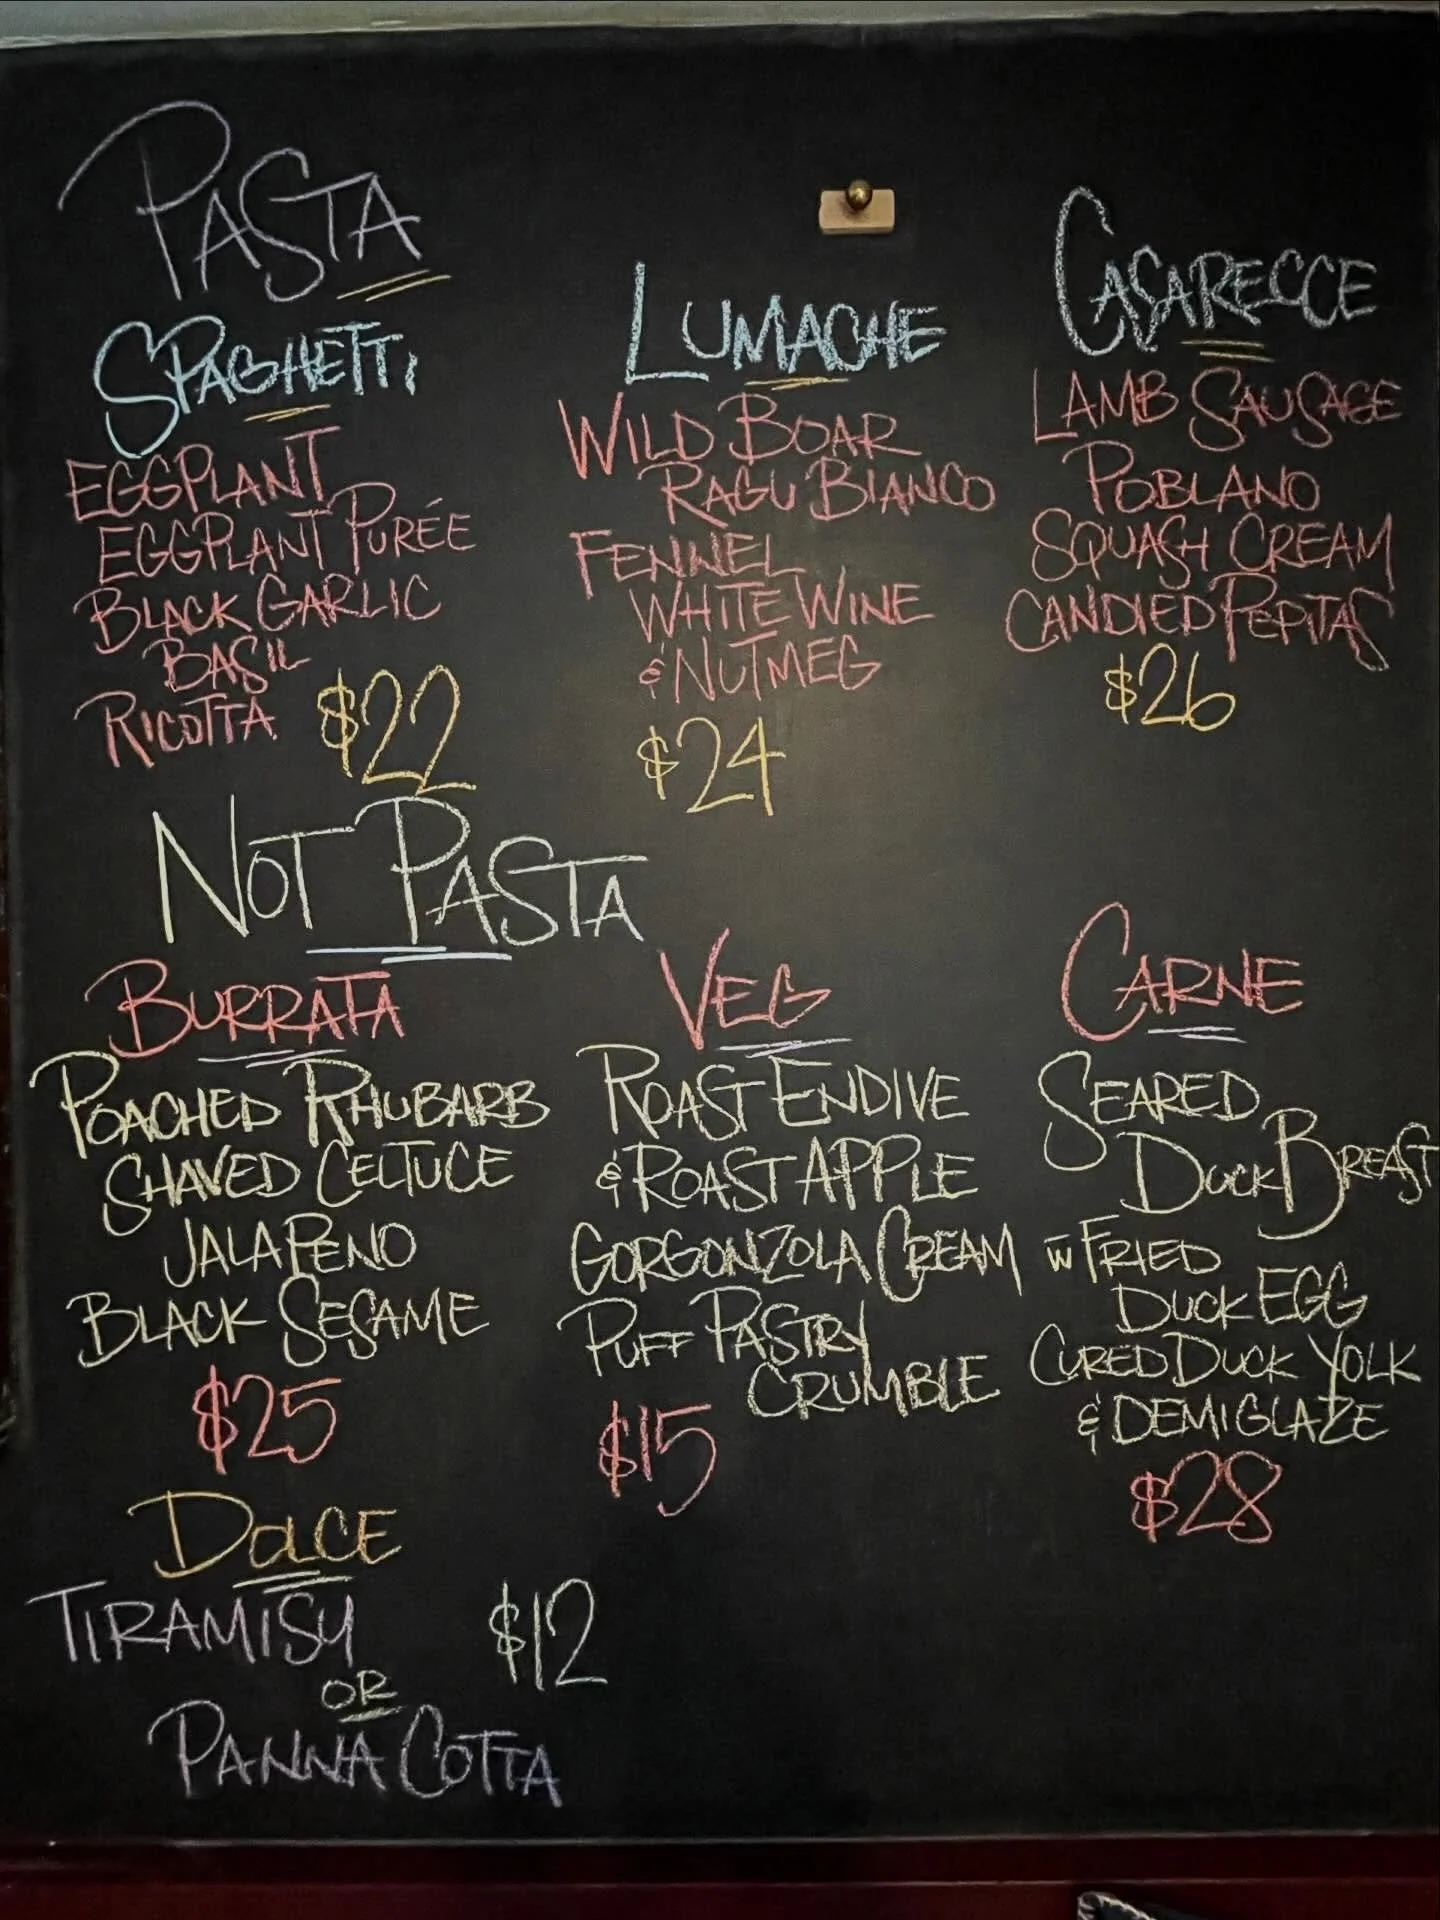 PASTA
SPAGHETTI
EGGPLANT
EGGPLANT PURÉE
BLACK GARLIC
BASIL
RICOTTA
$22
LUMACHE
WILD BOAR
RAGU BIANCO
FENNEL
WHITE WINE
& NUTMEG
$24
CASARECCE
LAMB SAUSAGE
POBLANO
SQUASH CREAM
CANDIED PEPITAS
$26
NOT PASTA
BURRATA
POACHED RHUBARB
SHAVED CELTUCE
JALAPENO
BLACK SESAME
$25
VEG
ROAST ENDIVE
& ROAST APPLE
GORGONZOLA CREAM
PUFF PASTRY
CRUMBLE
$15
CARNE
SEARED
DUCK BREAST
w FRIED
DUCK EGG
CURED DUCK YOLK
& DEMIGLAZE
$28
DOLCE
TIRAMISU
$12
OR
PANNA COTTA